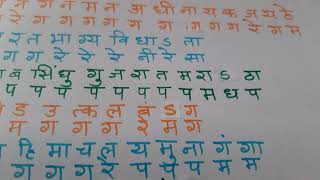 न ग न म न अ धी ना य क ज य हे
रे ग ग ग ग ग ग ग ग ग रे ग म
र त भा ग्य वि धा ऽ ता
ग ग रे रे रे नी रे सा
ब सिं धु गु ज रा त म रा ऽ ठा
प प प प प प प म ध प
ड उ त्क ल बं ऽ ग
म ग ग ग रे म ग
हि मा च ल य मु ना गं गा
ग ग ग रे प प प म म